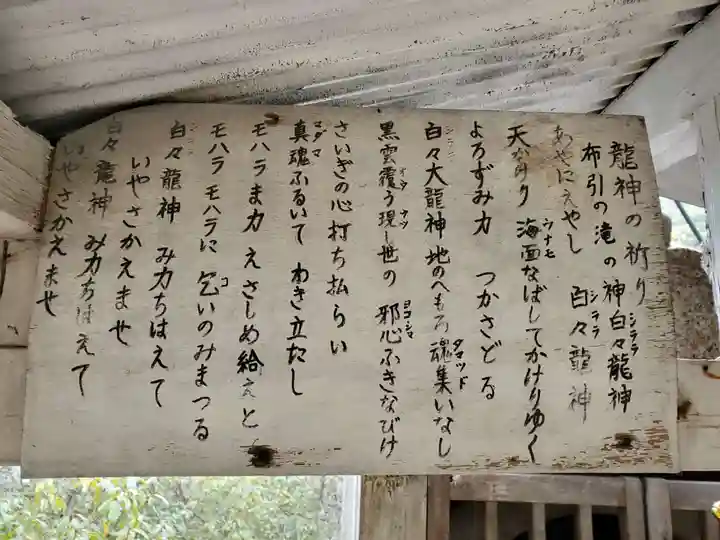 龍神の祈り
布引の滝の神白々龍神
シララ
あやにえやし 白々龍神
シララ
天がけり 海面なばしてかけりゆく
ウナモ
よろずみ力 つかさどる
白々大龍神 地のへもろ魂集いなし
シララ タマツド
黒雲覆う現し世の 邪心ふきなびけ
ヨコシマ
さいぎの心打ち払らい
真魂ふるいて わき立たし
マダマ
モハラま力 えさしめ給えと
モハラ モハラに 乞いのみまつる
コ
白々龍神 み力ちはえて
シララ
いやさかえませ
白々龍神 み力ちはえて
いやさかえませ